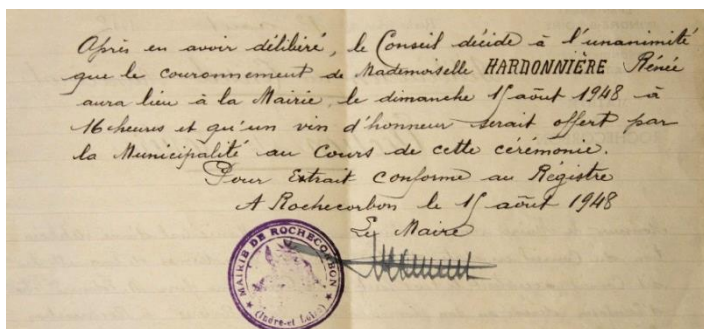 Après en avoir délibéré, le Conseil décide à l'unanimité
que le couronnement de Mademoiselle HARDONNIÈRE Rénée
aura lieu à la Mairie, le dimanche 15 août 1948 à
16 heures et qu'un vin d'honneur serait offert par
la Municipalité au Cours de cette cérémonie.
Pour Extrait conforme au Régistre
A Rochecorbon le 15 août 1948
Le Maire
MAIRIE DE ROCHECORBON
(Indre-et-Loire)